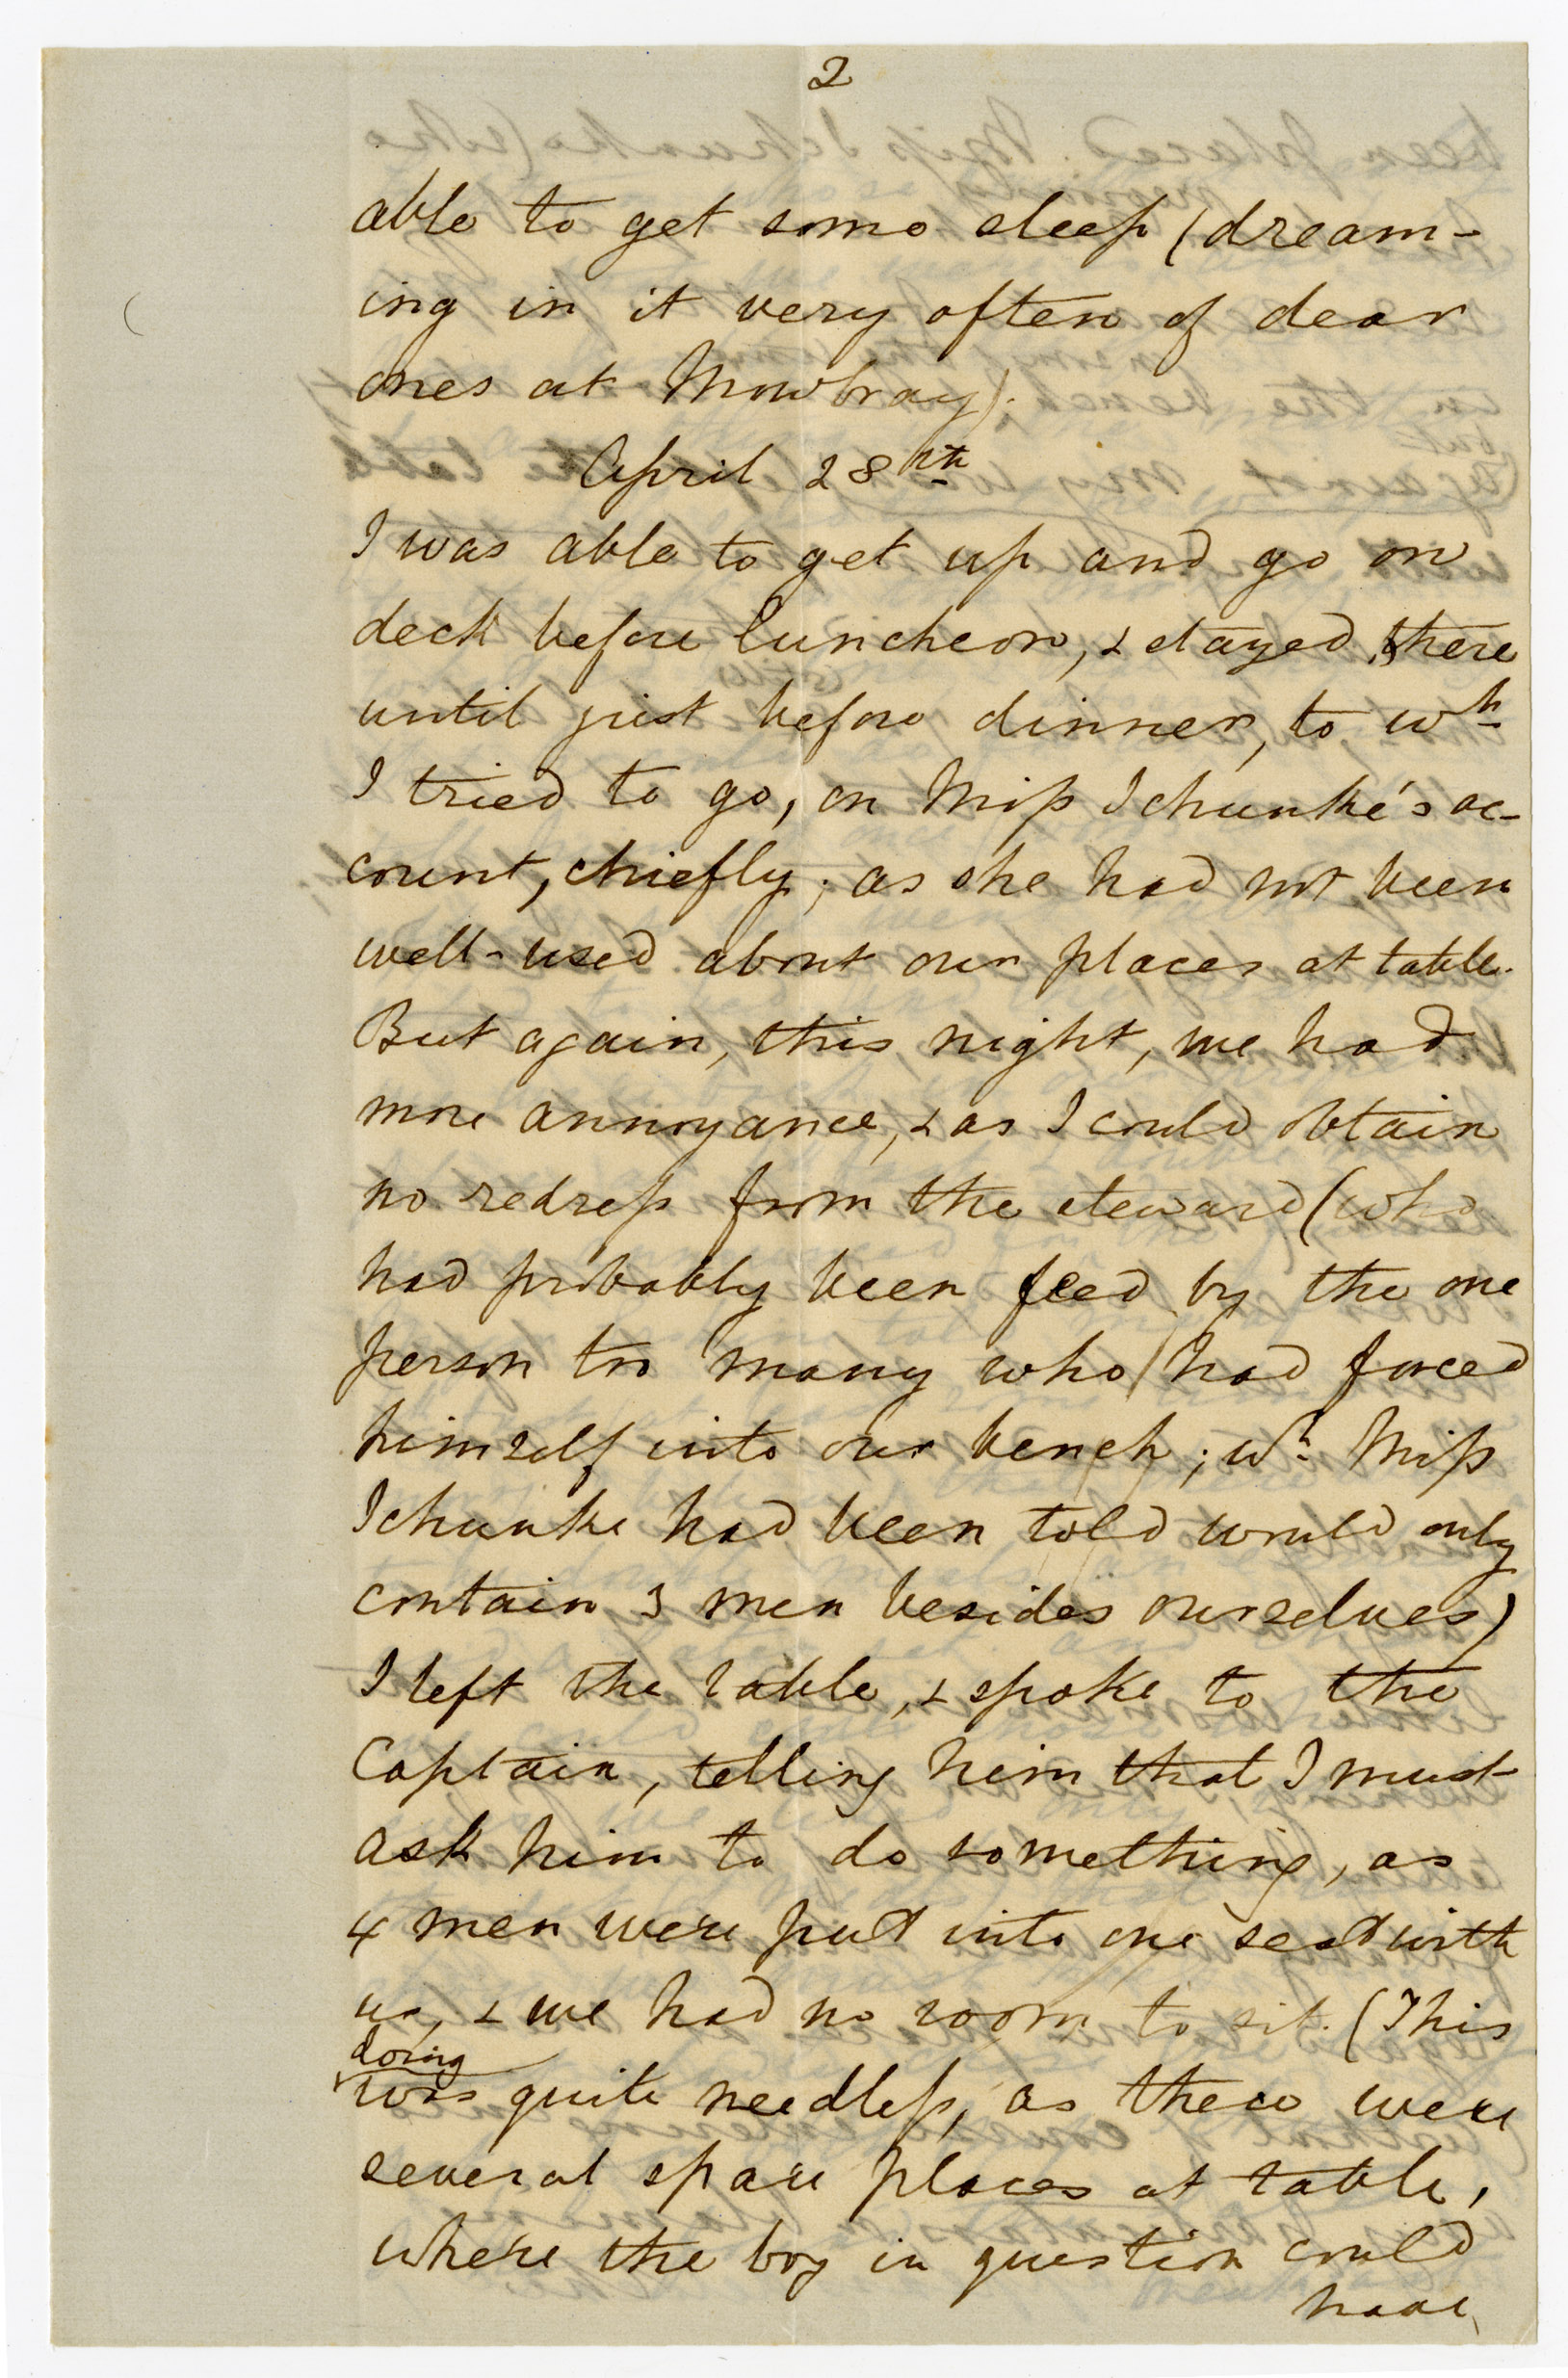 2
able to get some sleep (dream-
ing in it very often of dear
ones at Mowbray).
April 28th
I was able to get up and go on
deck before luncheon, & stayed there
until just before dinner, to wh
I tried to go, on Miss Schunke's ac-
count, chiefly; as she had not been
well-used about our places at table.
But again, this night, we had
more annoyance, & as I could obtain
no redress from the steward (who
had probably been feed by the one
person too many who had forced
himself into our bench; wh Miss
Schunke had been told would only
contain 3 men besides ourselves)
I left the table, & spoke to the
Captain, telling him that I must
ask him to do something, as
4 men were put into one seat with
us, & we had no room to sit. (This
doing
was quite needless, as there were
several spare places at table,
where the boy in question could
have